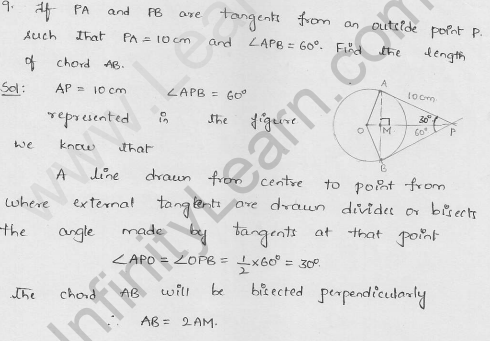 9. If PA and PB are tangents from an outside point P.
such that PA = 10 cm and ∠APB = 60°. Find the length
of chord AB.
Sol: AP = 10 cm ∠APB = 60°
represented in the figure
A
10 cm
30°
O
M
60°
P
B
we know that
A line drawn from centre to point from
where external tangents are drawn divides or bisects
the angle made by tangents at that point
∠APO = ∠OPB = 1/2 × 60° = 30°.
The chord AB will be bisected perpendicularly
∴ AB = 2AM.
www.
InfinityLearn.com